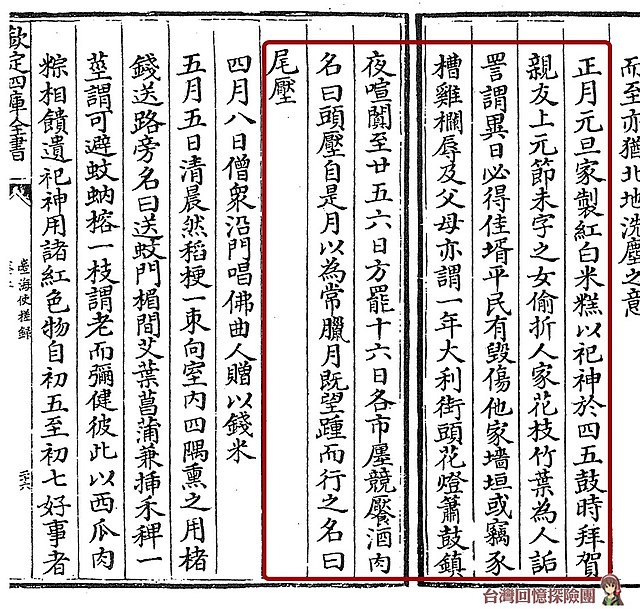 而至亦猶北地洗塵之意
正月元旦家製紅白米糕以祀神於四五鼓時拜賀
親友上元節未字之女偷折人家花枝竹葉為人詬
詈謂異日必得佳壻平民有毀傷他家墻垣或竊豕
槽雞欄辱及父母亦謂一年大利街頭花燈簫鼓鎮
夜喧闐至廿五六日方罷十六日各市廛競饜酒肉
名曰頭壓自是月以為常臘月既望踵而行之名曰
尾壓
四月八日僧衆沿門唱佛曲人贈以錢米
五月五日清晨然稻梗一束向室内四隅熏之用楮
錢送路旁名曰送蚊門楣間艾葉菖蒲兼揷禾稗一
莖謂可避蚊蚋榕一枝謂老而彌健彼此以西瓜肉
粽相饋遺祀神用諸紅色物自初五至初七好事者
欽定四庫全書
臺海使槎録
卷二
三六
台灣回憶探險團